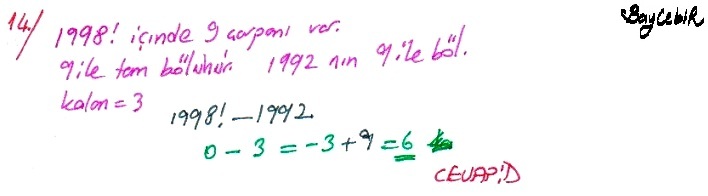 BayCebiR
14./ 1998! içinde 9 çarpanı var.
9 ile tam bölünür. 1992 nın 9 ile böl.
kalan = 3
1998! - 1992
0 - 3 = -3 + 9 = 6
CEVAP: D